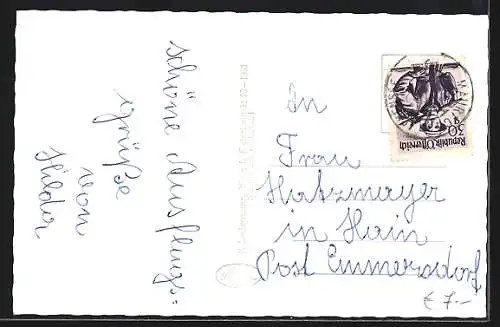 schöne Ausflugs=
grüße
von
Hilda
An
Frau
Hatzmayer
in Hain
Post Emmersdorf
30
Republik Österreich
€ 7.-